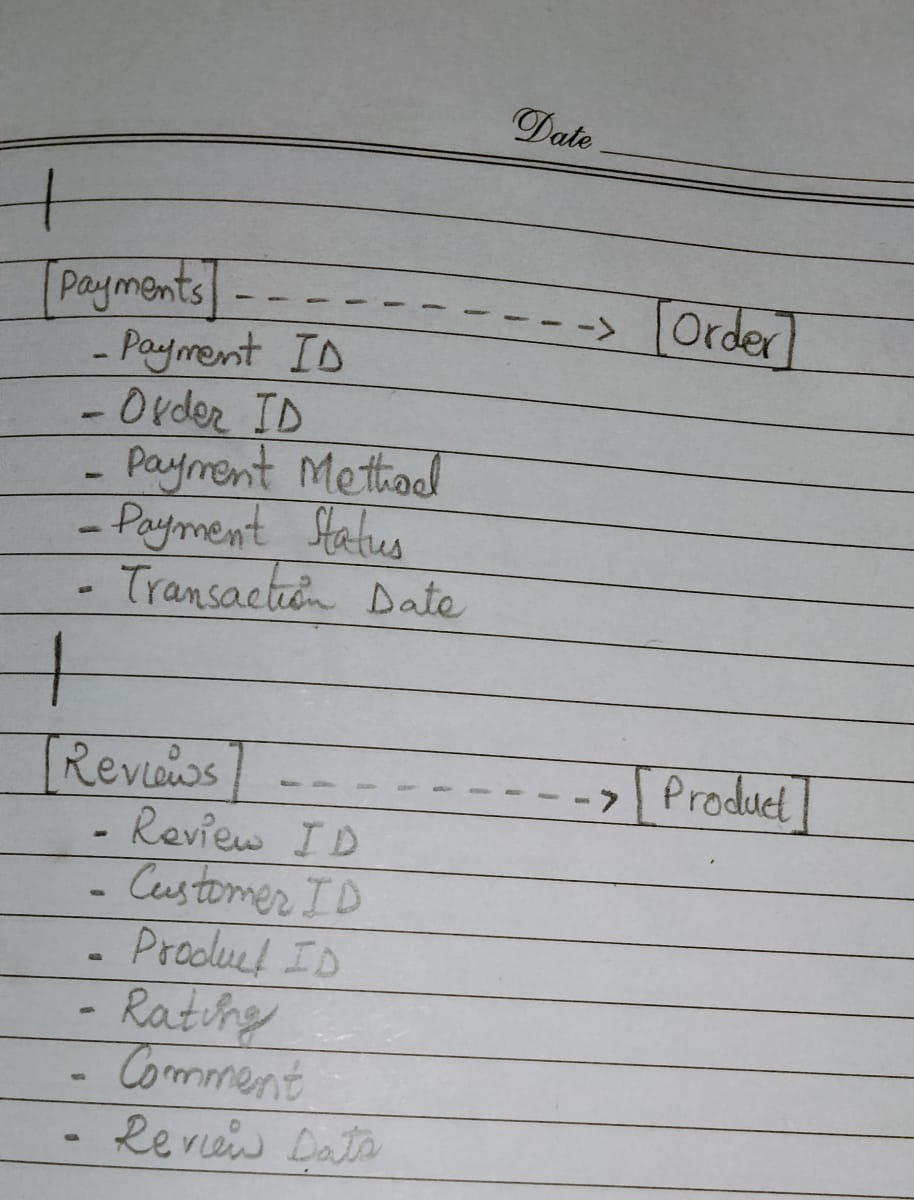 Date
[Payments] ----------> [Order]
- Payment ID
- Order ID
- Payment Method
- Payment Status
- Transaction Date
[Reviews] ---------> [Product]
- Review ID
- Customer ID
- Product ID
- Rating
- Comment
- Review Data